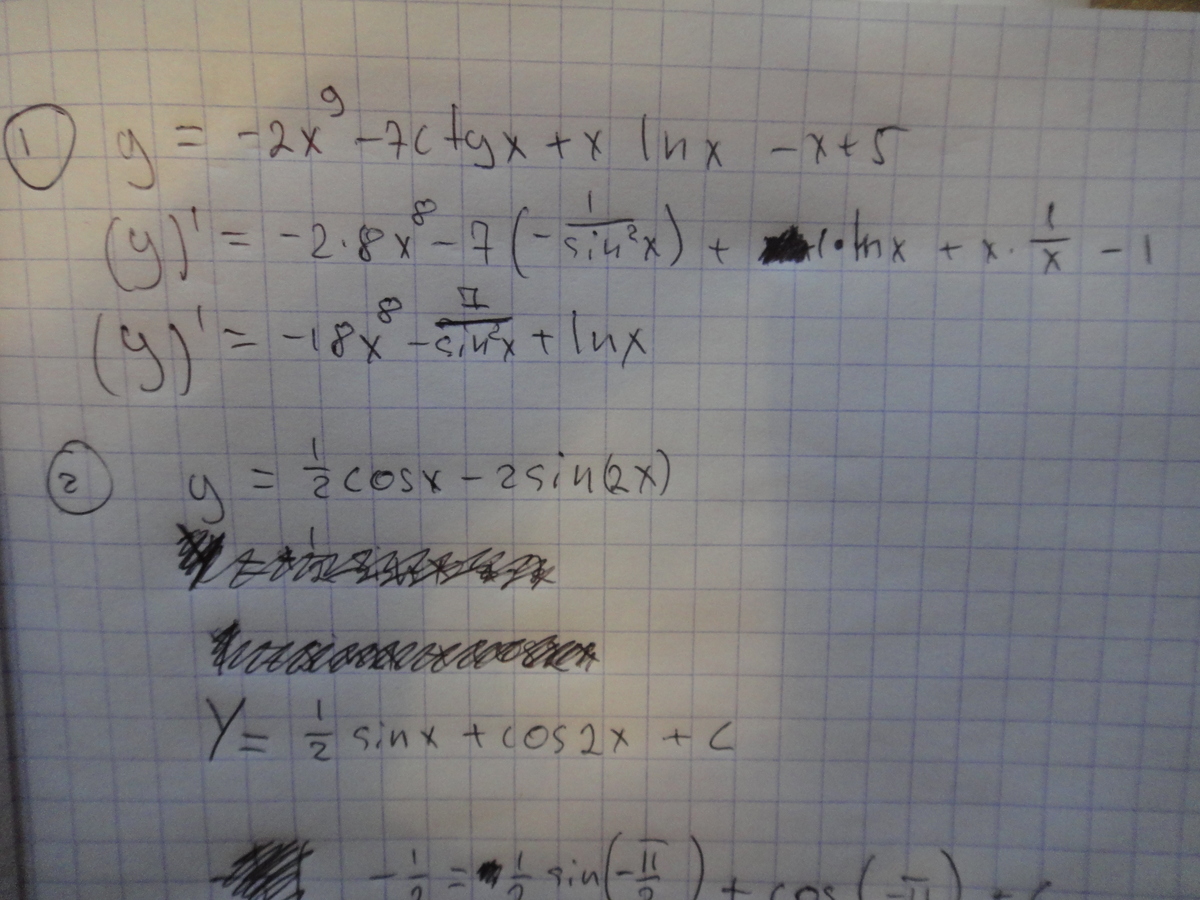 ① y = -2x⁹ -7ctgx + x lnx - x+5
(y)' = -2·8x⁸ - 7(-1/sin²x) + 1·lnx + x·1/x - 1
(y)' = -18x⁸ - 7/sin²x + lnx
② y = 1/2 cosx - 2sin(2x)
Y = 1/2 sinx + cos2x + c
-1/2 = 1/2 sin(-π/2) + cos(-π) + c